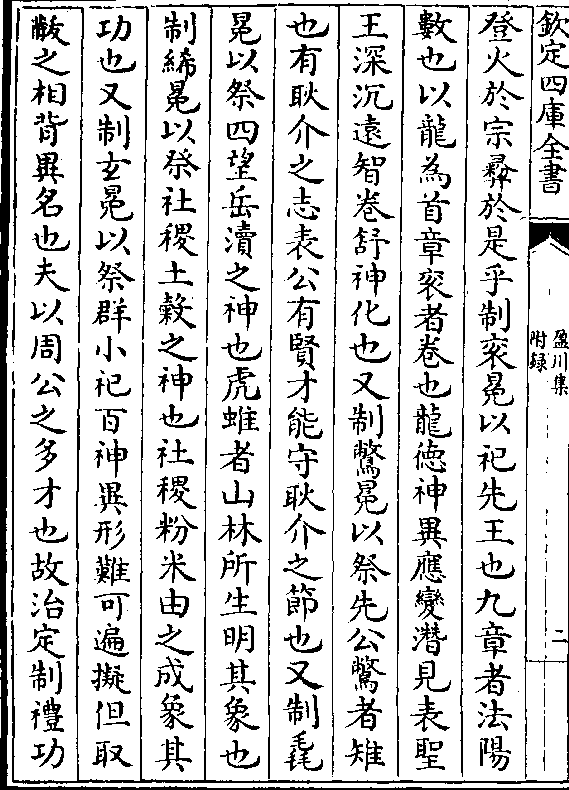 欽定四庫全書
盈川集
附録
二
登火於宗彝於是乎制衮冕以祀先王也九章者法陽
數也以龍為首章衮者卷也龍德神異應變潛見表聖
王深沉遠智卷舒神化也又制鷩冕以祭先公鷩者雉
也有耿介之志表公有賢才能守耿介之節也又制毳
冕以祭四望岳瀆之神也虎蜼者山林所生明其象也
制絺冕以祭社稷土穀之神也社稷粉米由之成象其
功也又制玄冕以祭群小祀百神異形難可遍擬但取
黻之相背異名也夫以周公之多才也故治定制禮功